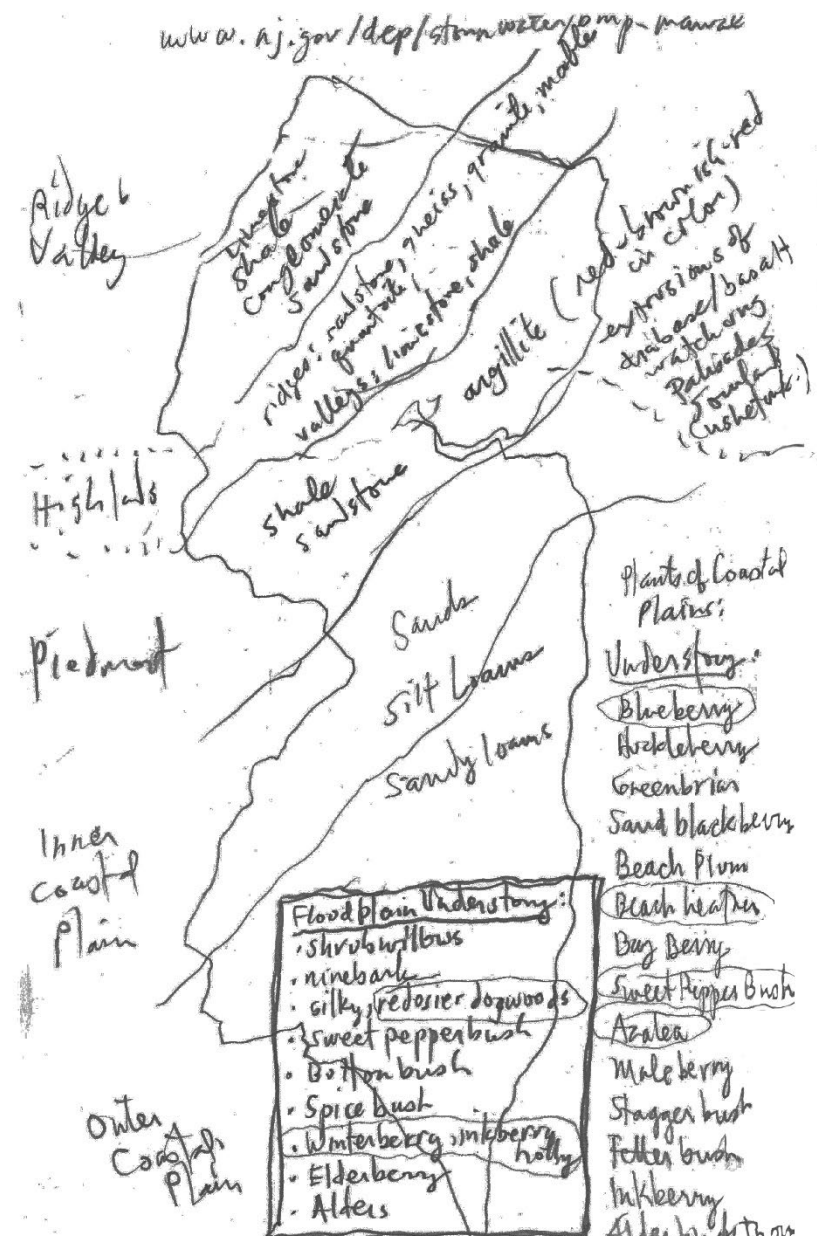 www.nj.gov/dep/stormwater/bmp-manual
Ridge &
Valley
Limestone
shale
conglomerate
sandstone
ridges: sandstone, gneiss, granite, marble
quartzite,
valleys: limestone, shale
argillite (red-brownish-red
in color)
extrusions of
diabase/basalt
watchung
Palisades
Sourland
Highlands
shale
sandstone
Piedmont
Sands
Silt Loams
Sandy loams
Inner
Coastal
Plain
Outer
Coastal
Plain
Floodplain Understory:
· shrub willows
· ninebark
· silky, redosier dogwoods
· Sweet pepperbush
· Buttonbush
· Spice bush
· Winterberry, inkberry
holly
· Elderberry
· Alders
Plants of Coastal
Plains:
Understory:
Blueberry
Huckleberry
Greenbriar
Sand blackberry
Beach Plum
Beach heather
Bay Berry
Sweet Pepper Bush
Azalea
Maleberry
Stagger bush
Fetter bush
Inkberry